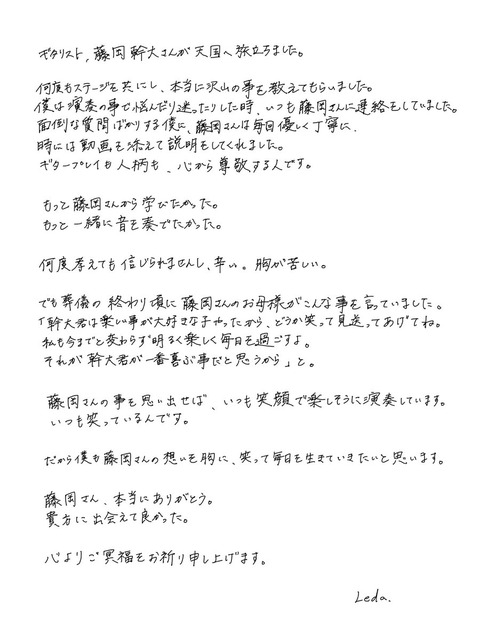 ギタリスト、藤岡幹大さんが天国へ旅立ちました。
何度もステージを共にし、本当に沢山の事を教えてもらいました。
僕は演奏の事で悩んだり迷ったりした時、いつも藤岡さんに連絡をしていました。
面倒な質問ばかりする僕に、藤岡さんは毎回優しく丁寧に、
時には動画を添えて説明をしてくれました。
ギタープレイも人柄も、心から尊敬する人です。
もっと藤岡さんから学びたかった。
もっと一緒に音を奏でたかった。
何度考えても信じられませんし、辛い。胸が苦しい。
でも葬儀の終わり頃に藤岡さんのお母様がこんな事を言っていました。
「幹大君は楽しい事が大好きな子やったから、どうか笑って見送ってあげてね。
私も今までと変わらず明るく楽しく毎日を過ごすよ。
それが幹大君が一番喜ぶ事だと思うから」と。
藤岡さんの事を思い出せば、いつも笑顔で楽しそうに演奏しています。
いつも笑っているんです。
だから僕も藤岡さんの想いを胸に、笑って毎日を生きていきたいと思います。
藤岡さん、本当にありがとう。
貴方に出会えて良かった。
心よりご冥福をお祈り申し上げます。
Leda.